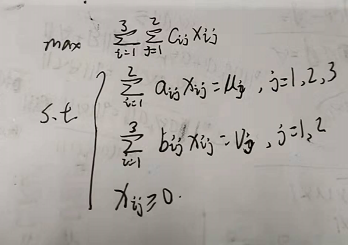 max ∑_{i=1}^{3} ∑_{j=1}^{2} c_{ij} x_{ij}
s.t { ∑_{i=1}^{2} a_{ij} x_{ij} = μ_j , j=1,2,3
∑_{i=1}^{3} b_{ij} x_{ij} = ν_j , j=1,2
x_{ij} ≥ 0.